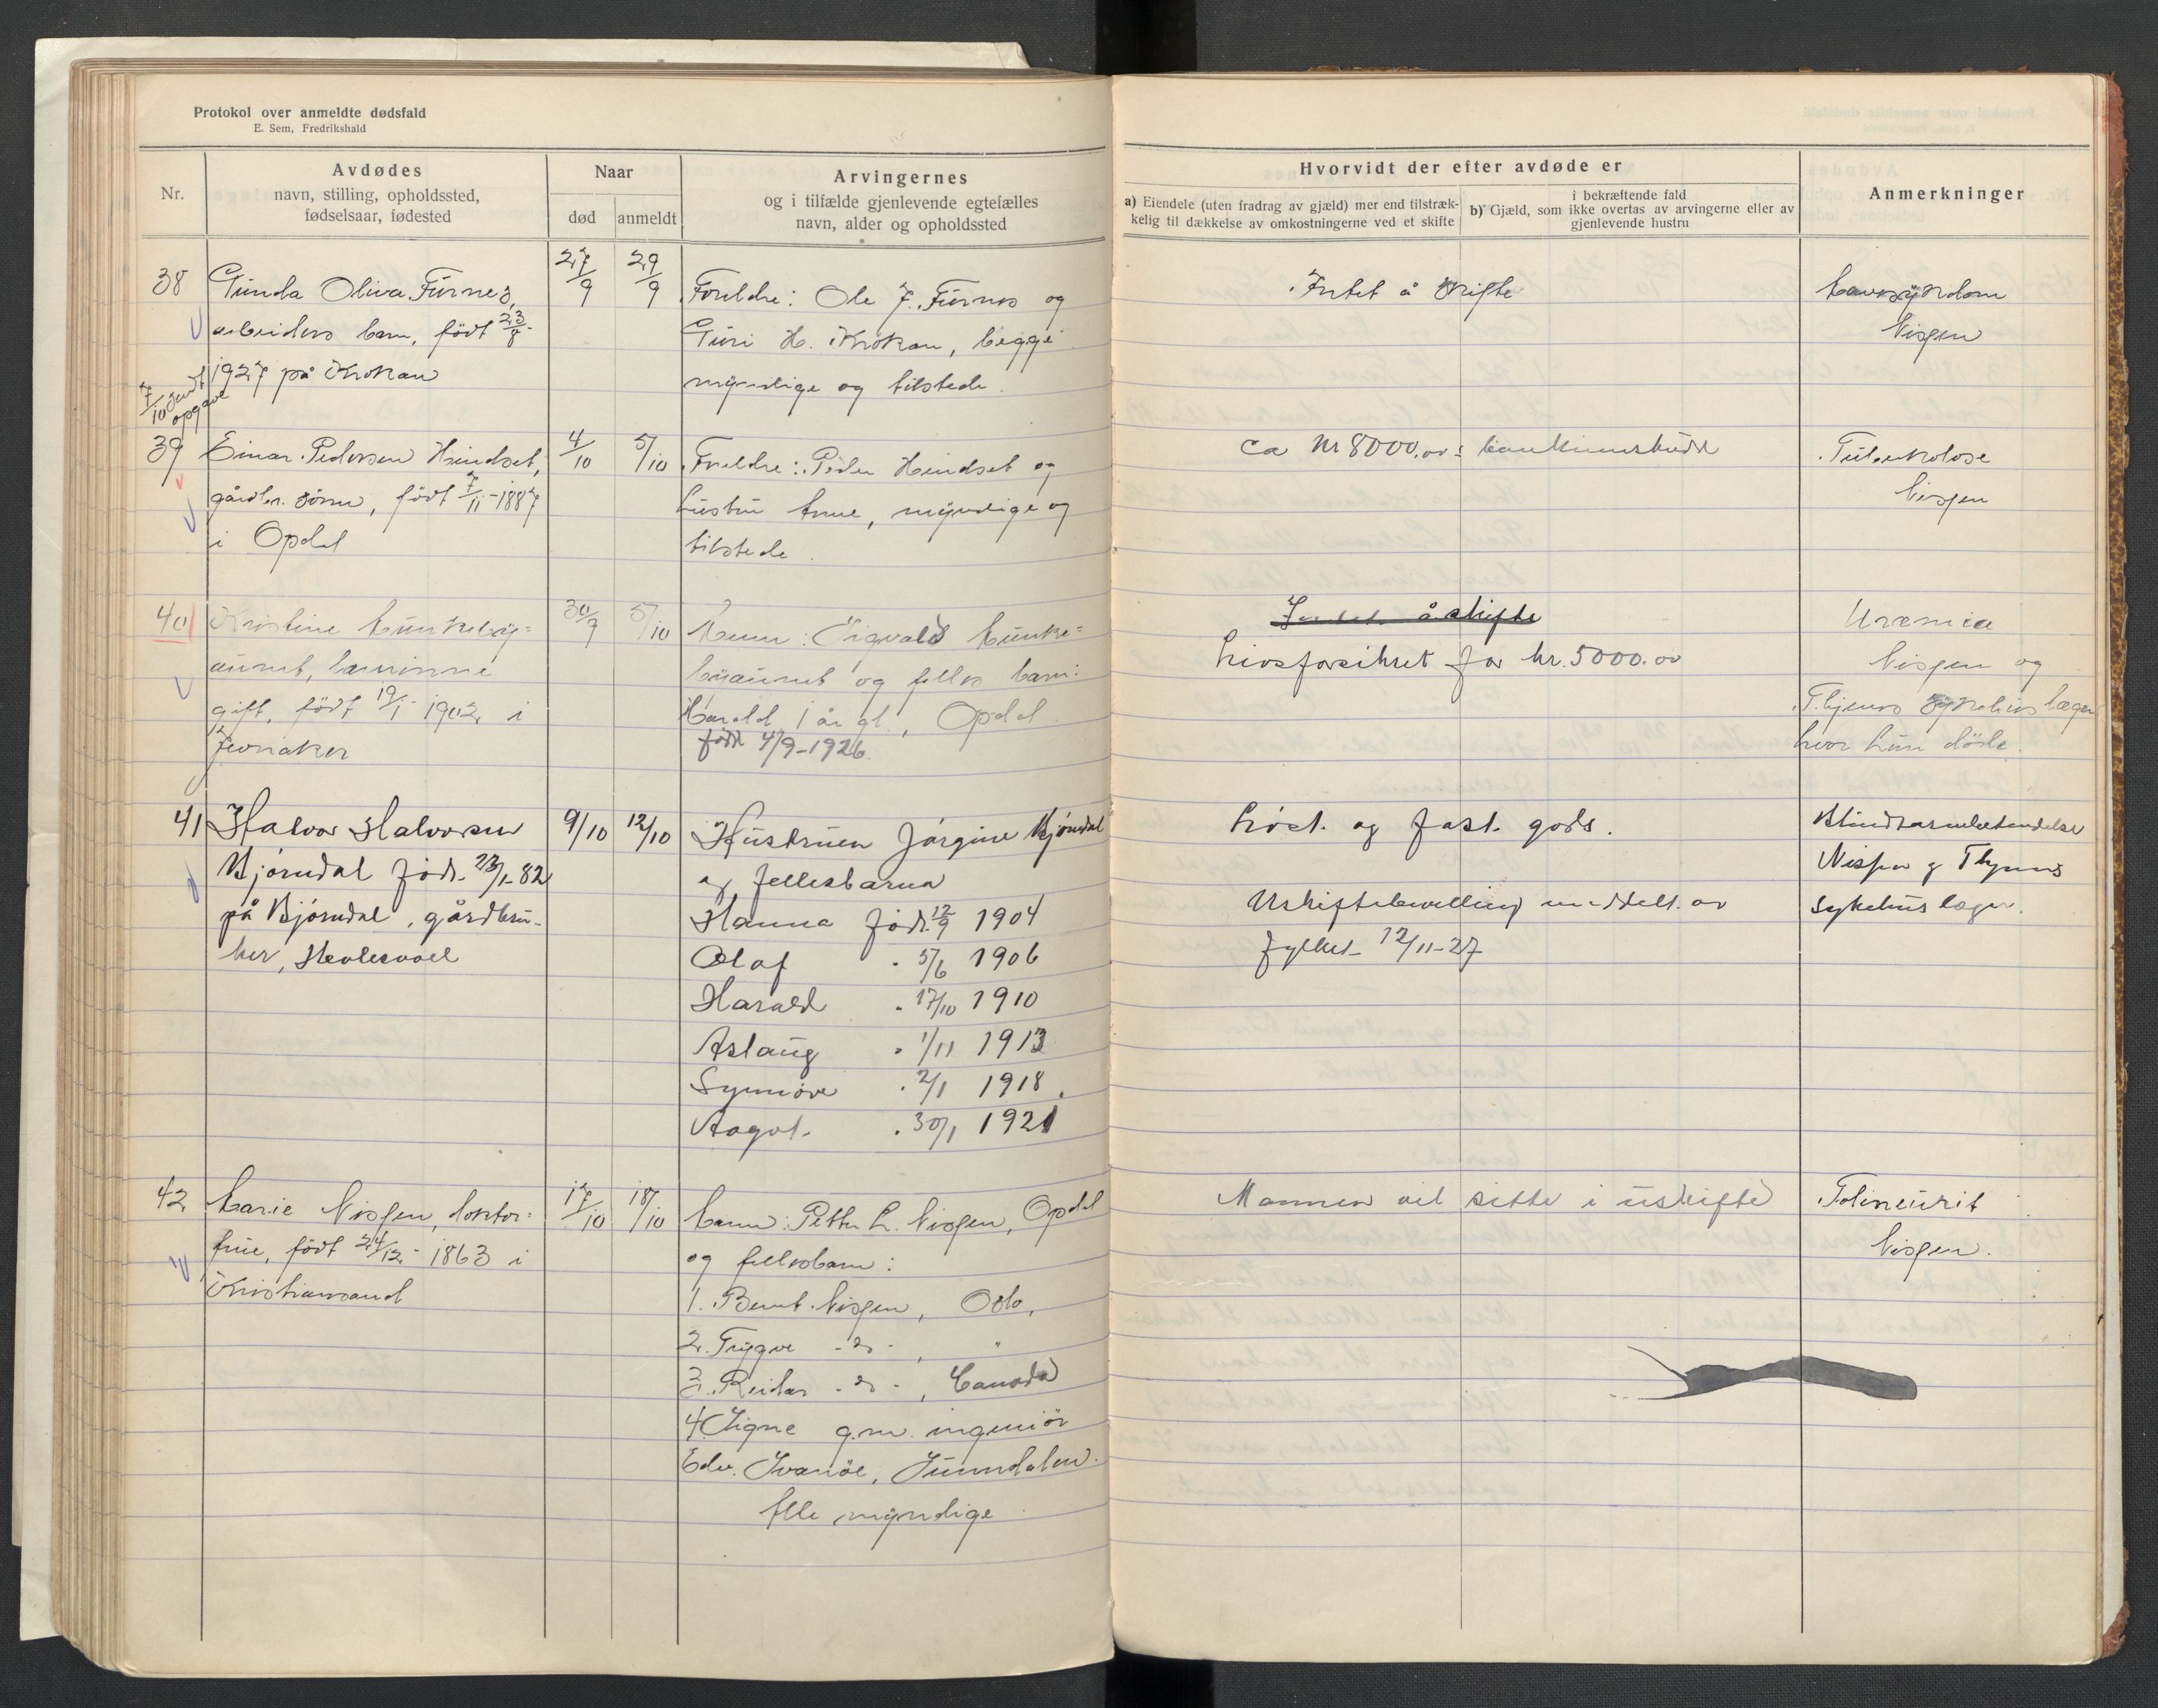 Protokol over anmeldte dødsfald
E. Sem, Fredrikshald
Nr.
Avdødes
navn, stilling, opholdssted,
fødselsaar, fødested
Naar
død
anmeldt
Arvingernes
og i tilfælde gjenlevende egtefælles
navn, alder og opholdssted
Hvorvidt der efter avdøde er
a) Eiendele (uten fradrag av gjæld) mer end tilstræk-
kelig til dækkelse av omkostningerne ved et skifte
i bekræftende fald
b) Gjæld, som ikke overtas av arvingerne eller av
gjenlevende hustru
Anmerkninger
38
Gunda Oliva Furnes,
arbeiders barn, født 23/8-
1927 på Krokan
27/9
29/9
Foreldre: Ole J. Furnes og
Guri H. Krokan, begge
myndige og tilstede.
Intet å skifte
Nisgen
7/10 sendt
opgave
39
Einar Pedersen Heindset,
gårdbr. sønn, født 7/11-1887
i Opdal
4/10
5/10
Foreldre: Peder Heindset og
hustru Anne, myndige og
tilstede.
ca kr 8000.00 i
Tuberkolose
Nisgen
40
Kristine
gift, født 19/1-1902 i
Jevnaker
30/9
5/10
Mann: Sigvald
og felles barn:
Harald 1 år gl., Opdal
født 4/9-1926.
Intet å skifte
Livsforsikret for kr. 5000.00
Uremia
Nisgen og
Tynns sykehus læger
hvor hun døde.
41
Halvor Halvorsen
Bjørndal født 23/1-82
på Bjørndal, gårdbru-
ker,
9/10
12/10
Hustruen Jørgine Bjørndal
og fellesbarna
Hanna født 12/9 1904
Olaf " 5/6 1906
Harald " 17/10 1910
Aslaug " 1/11 1913
Synnøve " 2/1 1918.
Aagot " 30/1 1921
Løst og fast gods.
Uskiftebevilling meddelt av
fylket 12/11-27
Blindtarmbetendelse
Nisgen og Tynns
sykehus læger.
42
Marie Nisgen, doktor-
frue, født 24/12-1863 i
Kristiansand
17/10
18/10
Mann: Petter L. Nisgen, Opdal
og fellesbarn:
1. Bernt Nisgen, Oslo,
2. Trygve -do- , "
3. Reidar -do- , Canada
4. Signe g.m. ingeniör
Edv. Svanöe, Sunndalen.
Alle myndige
Mannen vil sitte i uskifte
Polineurit
Nisgen.